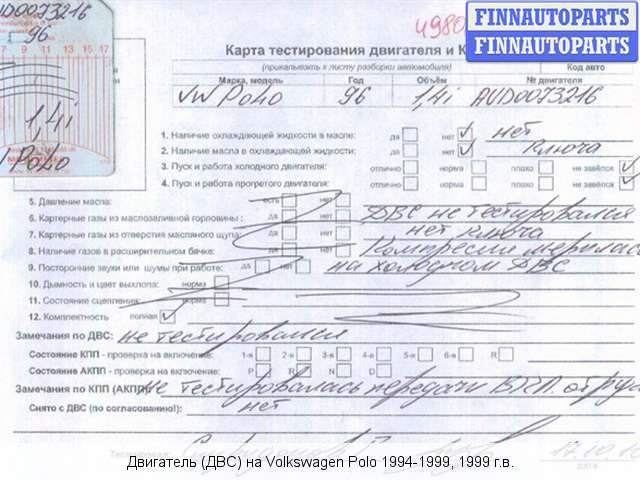 AUD0073216
96
1,4i
Polo
4980
FINNAUTOPARTS
FINNAUTOPARTS
Карта тестирования двигателя и К
(прикалывать к листу разборки автомобиля)
Код авто
Марка, модель Год Объём № двигателя
VW Polo 96 1,4i AUD0073216
1. Наличие охлаждающей жидкости в масле: да нет нет
2. Наличие масла в охлаждающей жидкости: да нет ключа
3. Пуск и работа холодного двигателя: отлично норма плохо не завёлся
4. Пуск и работа прогретого двигателя: отлично норма плохо не завёлся
5. Давление масла: есть нет
6. Картерные газы из маслозаливной горловины: да нет ДВС не тестировался
7. Картерные газы из отверстия масляного щупа: да нет нет ключа
8. Наличие газов в расширительном бачке: да нет Компрессия мерилась
9. Посторонние звуки или шумы при работе: да нет на холодном ДВС
10. Дымность и цвет выхлопа: норма
11. Состояние сцепления: норма
12. Комплектность полная
Замечания по ДВС: не тестировался
Состояние КПП - проверка на включение: 1-я 2-я 3-я 4-я 5-я 6-я R
Состояние АКПП - проверка на включение: P R N D
Замечания по КПП (АКПП): не тестировалась передачи ВКЛ. от ру
Снято с ДВС (по согласованию!): нет
Тестировал:
17.10.
дата
Двигатель (ДВС) на Volkswagen Polo 1994-1999, 1999 г.в.